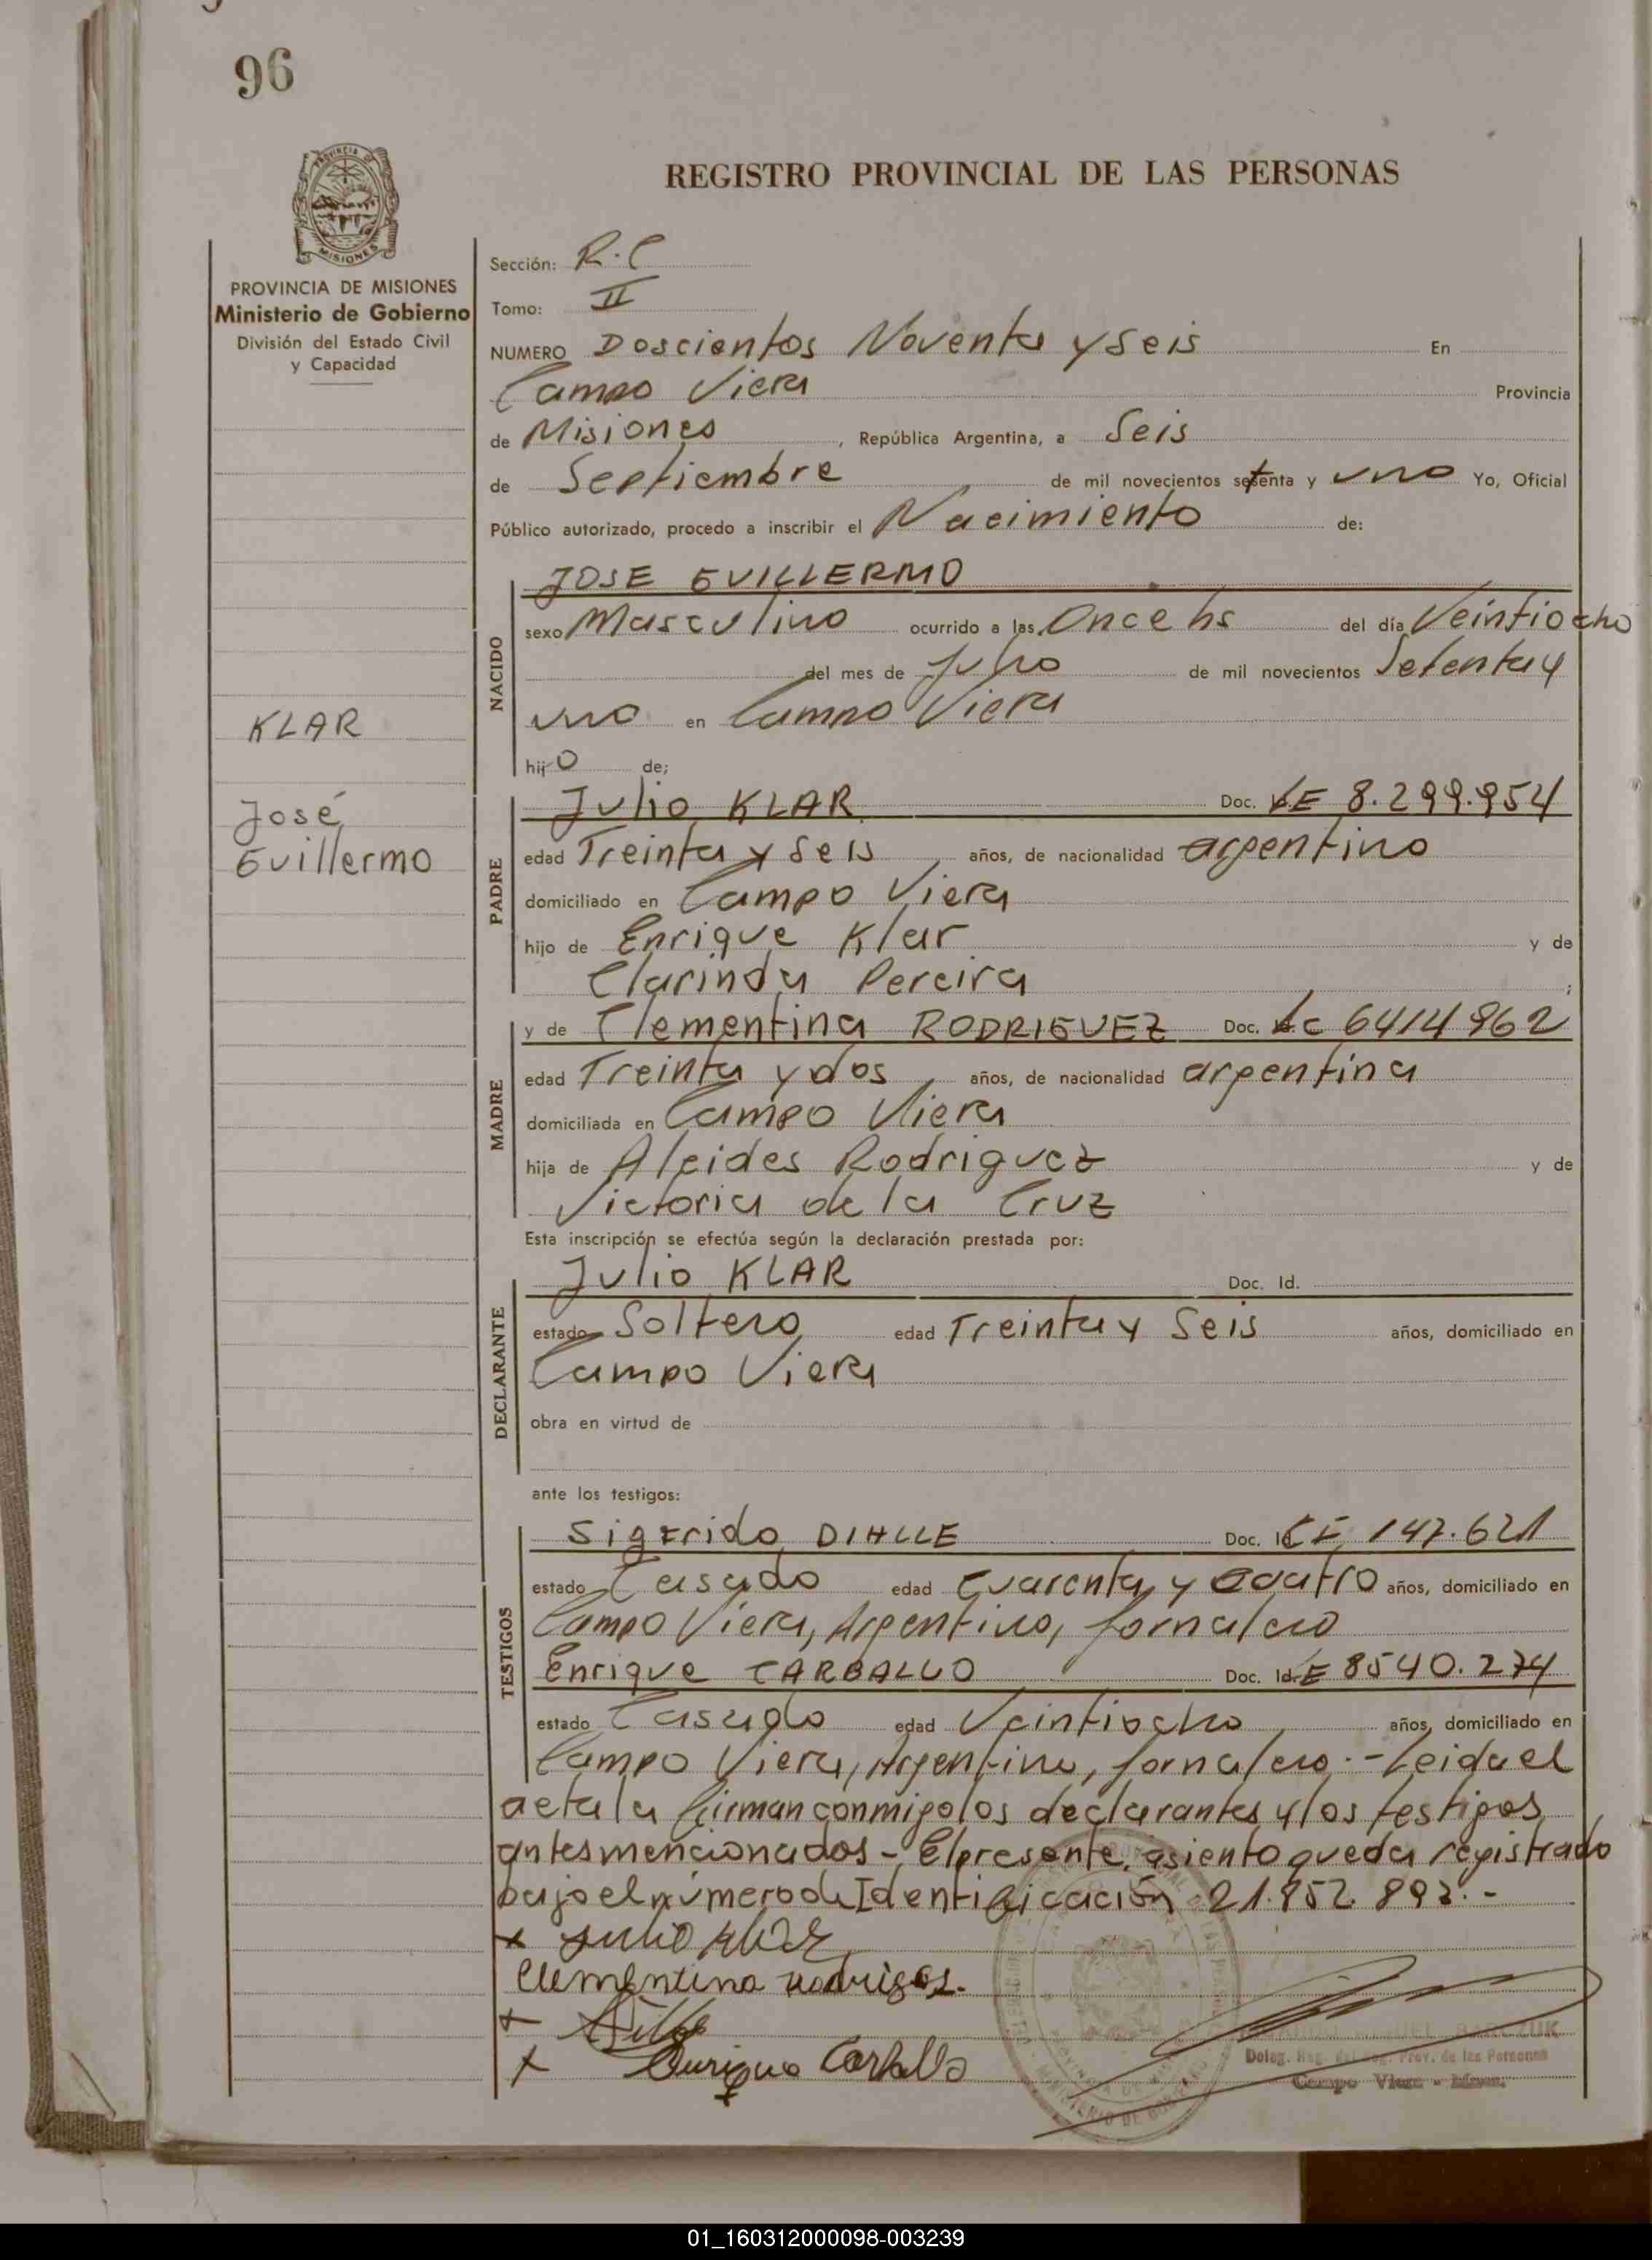 96
REGISTRO PROVINCIAL DE LAS PERSONAS
PROVINCIA DE MISIONES
Ministerio de Gobierno
División del Estado Civil
y Capacidad
KLAR
José
Guillermo
Sección: R.C
Tomo: II
NUMERO Doscientos Noventa y Seis En
Campo Viera Provincia
de Misiones, República Argentina, a Seis
de Septiembre de mil novecientos setenta y uno Yo, Oficial
Público autorizado, procedo a inscribir el Nacimiento de:
NACIDO
JOSE GUILLERMO
sexo Masculino ocurrido a las Once hs del día Veintiocho
del mes de Julio de mil novecientos Setenta y
uno en Campo Viera
hijo de;
PADRE
Julio KLAR Doc. LE 8.299.954
edad Treinta y Seis, años, de nacionalidad argentino
domiciliado en Campo Viera
hijo de Enrique Klar y de
Clarinda Pereira;
MADRE
y de Clementina RODRIGUEZ Doc. LC 6414962
edad Treinta y dos, años, de nacionalidad argentina
domiciliada en Campo Viera
hija de Alcides Rodriguez y de
Victoria de la Cruz
Esta inscripción se efectúa según la declaración prestada por:
DECLARANTE
Julio KLAR Doc. Id.
estado Soltero edad Treinta y Seis años, domiciliado en
Campo Viera
obra en virtud de
ante los testigos:
TESTIGOS
Sigfrido DIHLLE Doc. Id 147.621
estado Casado edad Cuarenta y Cuatro años, domiciliado en
Campo Viera, Argentino, Jornalero
Enrique CARBALLO Doc. Id LE 8540.274
estado Casado edad Veintiocho años, domiciliado en
Campo Viera, Argentino, Jornalero.- Leida el
acta la firman conmigo los declarantes y los testigos
antes mencionados - El presente asiento queda registrado
bajo el número de Identificación 21.952.893.-
x Julio Klar
Clementina rodrigas.
x
x Enrique Carballo
BARCZUK
Deleg. Reg. del Reg. Prov. de las Personas
Campo Viera - Mnes.
01_160312000098-003239